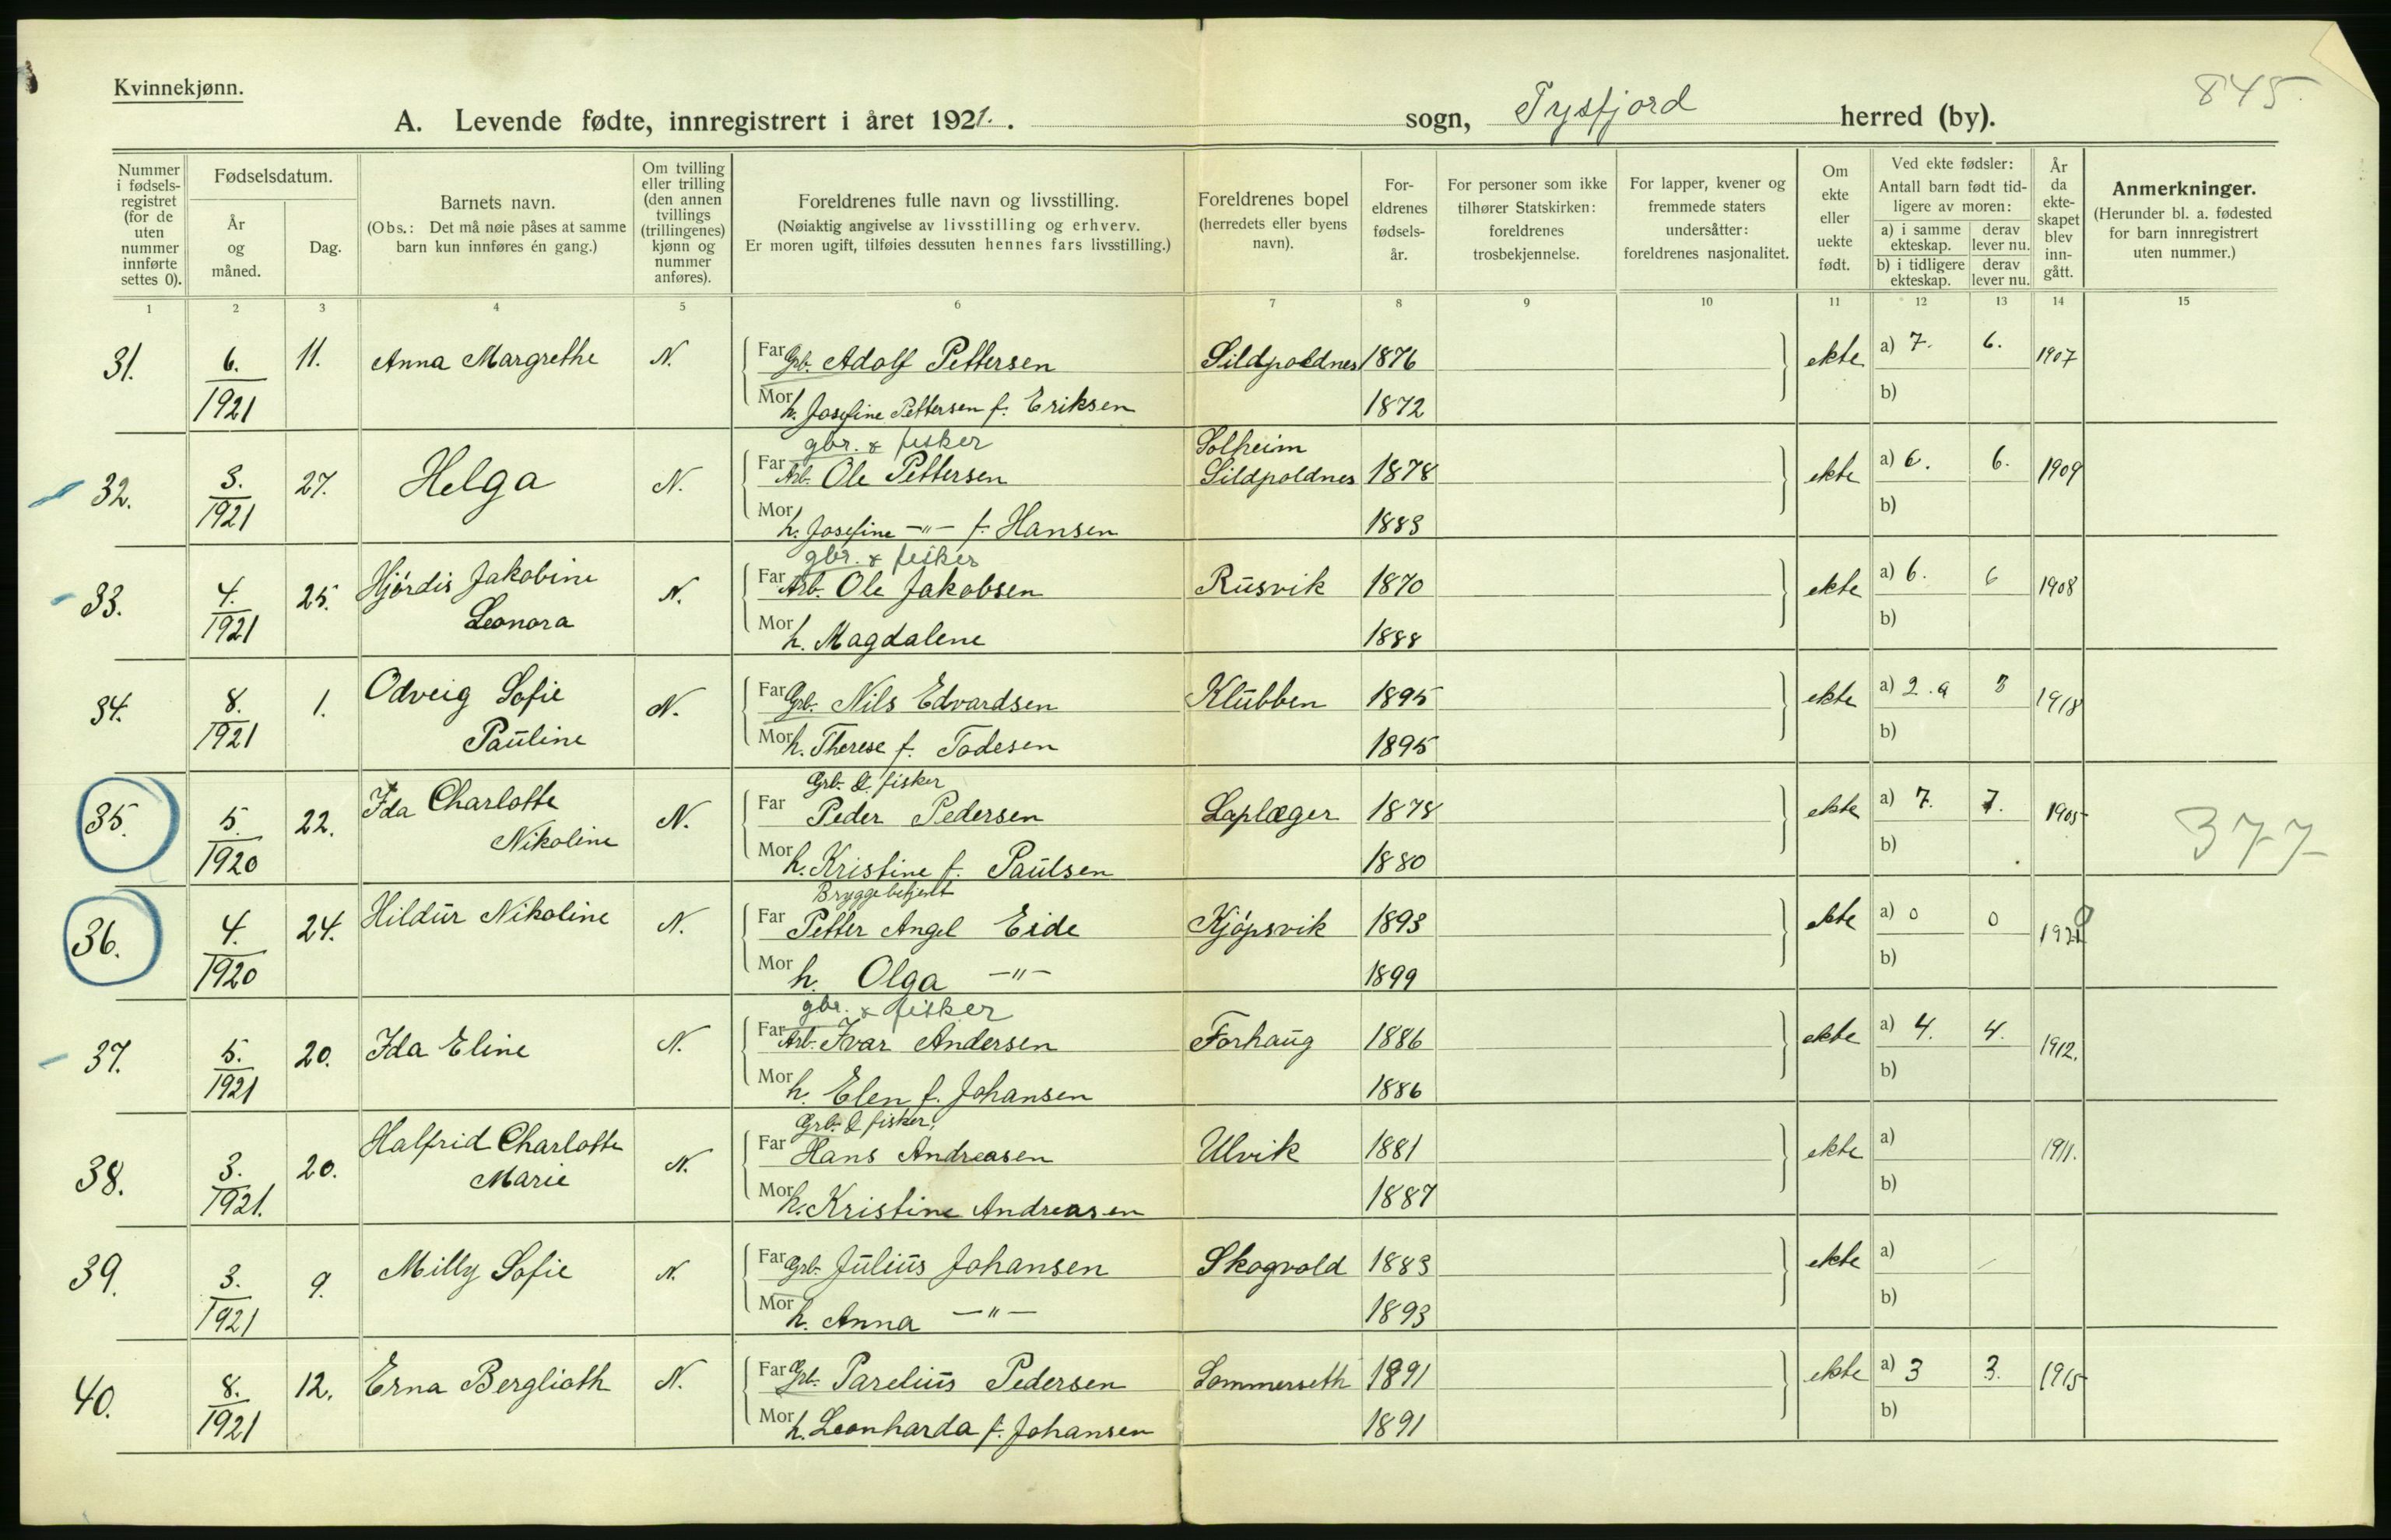 Kvinnekjønn.
845.
A. Levende fødte, innregistrert i året 1921. . sogn, Tysfjord herred (by).
Nummer i fødsels-registret (for de uten nummer innførte settes 0).
Fødselsdatum.
År og måned.
Dag.
Barnets navn.
(Obs.: Det må nøie påses at samme barn kun innføres én gang.)
Om tvilling eller trilling (den annen tvillings (trillingenes) kjønn og nummer anføres).
Foreldrenes fulle navn og livsstilling.
(Nøiaktig angivelse av livsstilling og erhverv.
Er moren ugift, tilføies dessuten hennes fars livsstilling.)
Foreldrenes bopel (herredets eller byens navn).
For-eldrenes fødsels-år.
For personer som ikke tilhører Statskirken: foreldrenes trosbekjennelse.
For lapper, kvener og fremmede staters undersåtter: foreldrenes nasjonalitet.
Om ekte eller uekte født.
Ved ekte fødsler:
Antall barn født tid-ligere av moren:
a) i samme ekteskap. derav lever nu.
b) i tidligere ekteskap. derav lever nu.
År da ekte-skapet blev inn-gått.
Anmerkninger.
(Herunder bl. a. fødested for barn innregistrert uten nummer.)
1 2 3 4 5 6 7 8 9 10 11 12 13 14 15
31. 6. 1921 11. Anna Margrethe N. Far Grb. Adolf Pettersen Sildpoldnes 1876 ekte a) 7. 6. 1907
Mor h. Josefine Pettersen f. Eriksen 1872 b)
gbr. & fisker Solheim
32. 3. 1921 27. Helga N. Far Arb. Ole Pettersen Sildpoldnes 1878 ekte a) 6. 6. 1909
Mor h. Josefine -"- f. Hansen 1883 b)
gbr. & fisker
33. 4. 1921 25. Hjørdis Jakobine Leonora N. Far Arb. Ole Jakobsen Rusvik 1870 ekte a) 6. 6 1908
Mor h. Magdalene 1888 b)
34. 8. 1921 1. Odveig Sofie Pauline N. Far Grb. Nils Edvardsen Klubben 1895 ekte a) 2. 1918
Mor h. Therese f. Todesen 1895 b)
Grb. & fisker
35. 5. 1920 22. Ida Charlotte Nikoline N. Far Peder Pedersen Laplæger 1878 ekte a) 7. 7. 1905 377
Mor h. Kristine f. Paulsen 1880 b)
Bryggebetjent
36. 4. 1920 24. Hildur Nikoline N. Far Petter Angel Eide Kjøpsvik 1893 ekte a) 0 0 1920
Mor h. Olga -"- 1899 b)
gbr. & fisker
37. 5. 1921 20. Ida Eline N. Far Arb. Ivar Andersen Forhaug 1886 ekte a) 4. 4. 1912.
Mor h. Elen f. Johansen 1886 b)
Grb. & fisker.
38. 3. 1921. 20. Halfrid Charlotte Marie N. Far Hans Andreasen Ulvik 1881 ekte a) 1911.
Mor h. Kristine Andreasen 1887 b)
39. 3. 1921 9. Milly Sofie N. Far Grb. Julius Johansen Skogvold 1883 ekte a)
Mor h. Anna -"- 1893 b)
40. 8. 1921 12. Erna Berglioth N. Far Grb. Parelius Pedersen Sommerseth 1891 ekte a) 3 3. 1915
Mor h. Leonharda f. Johansen 1891 b)